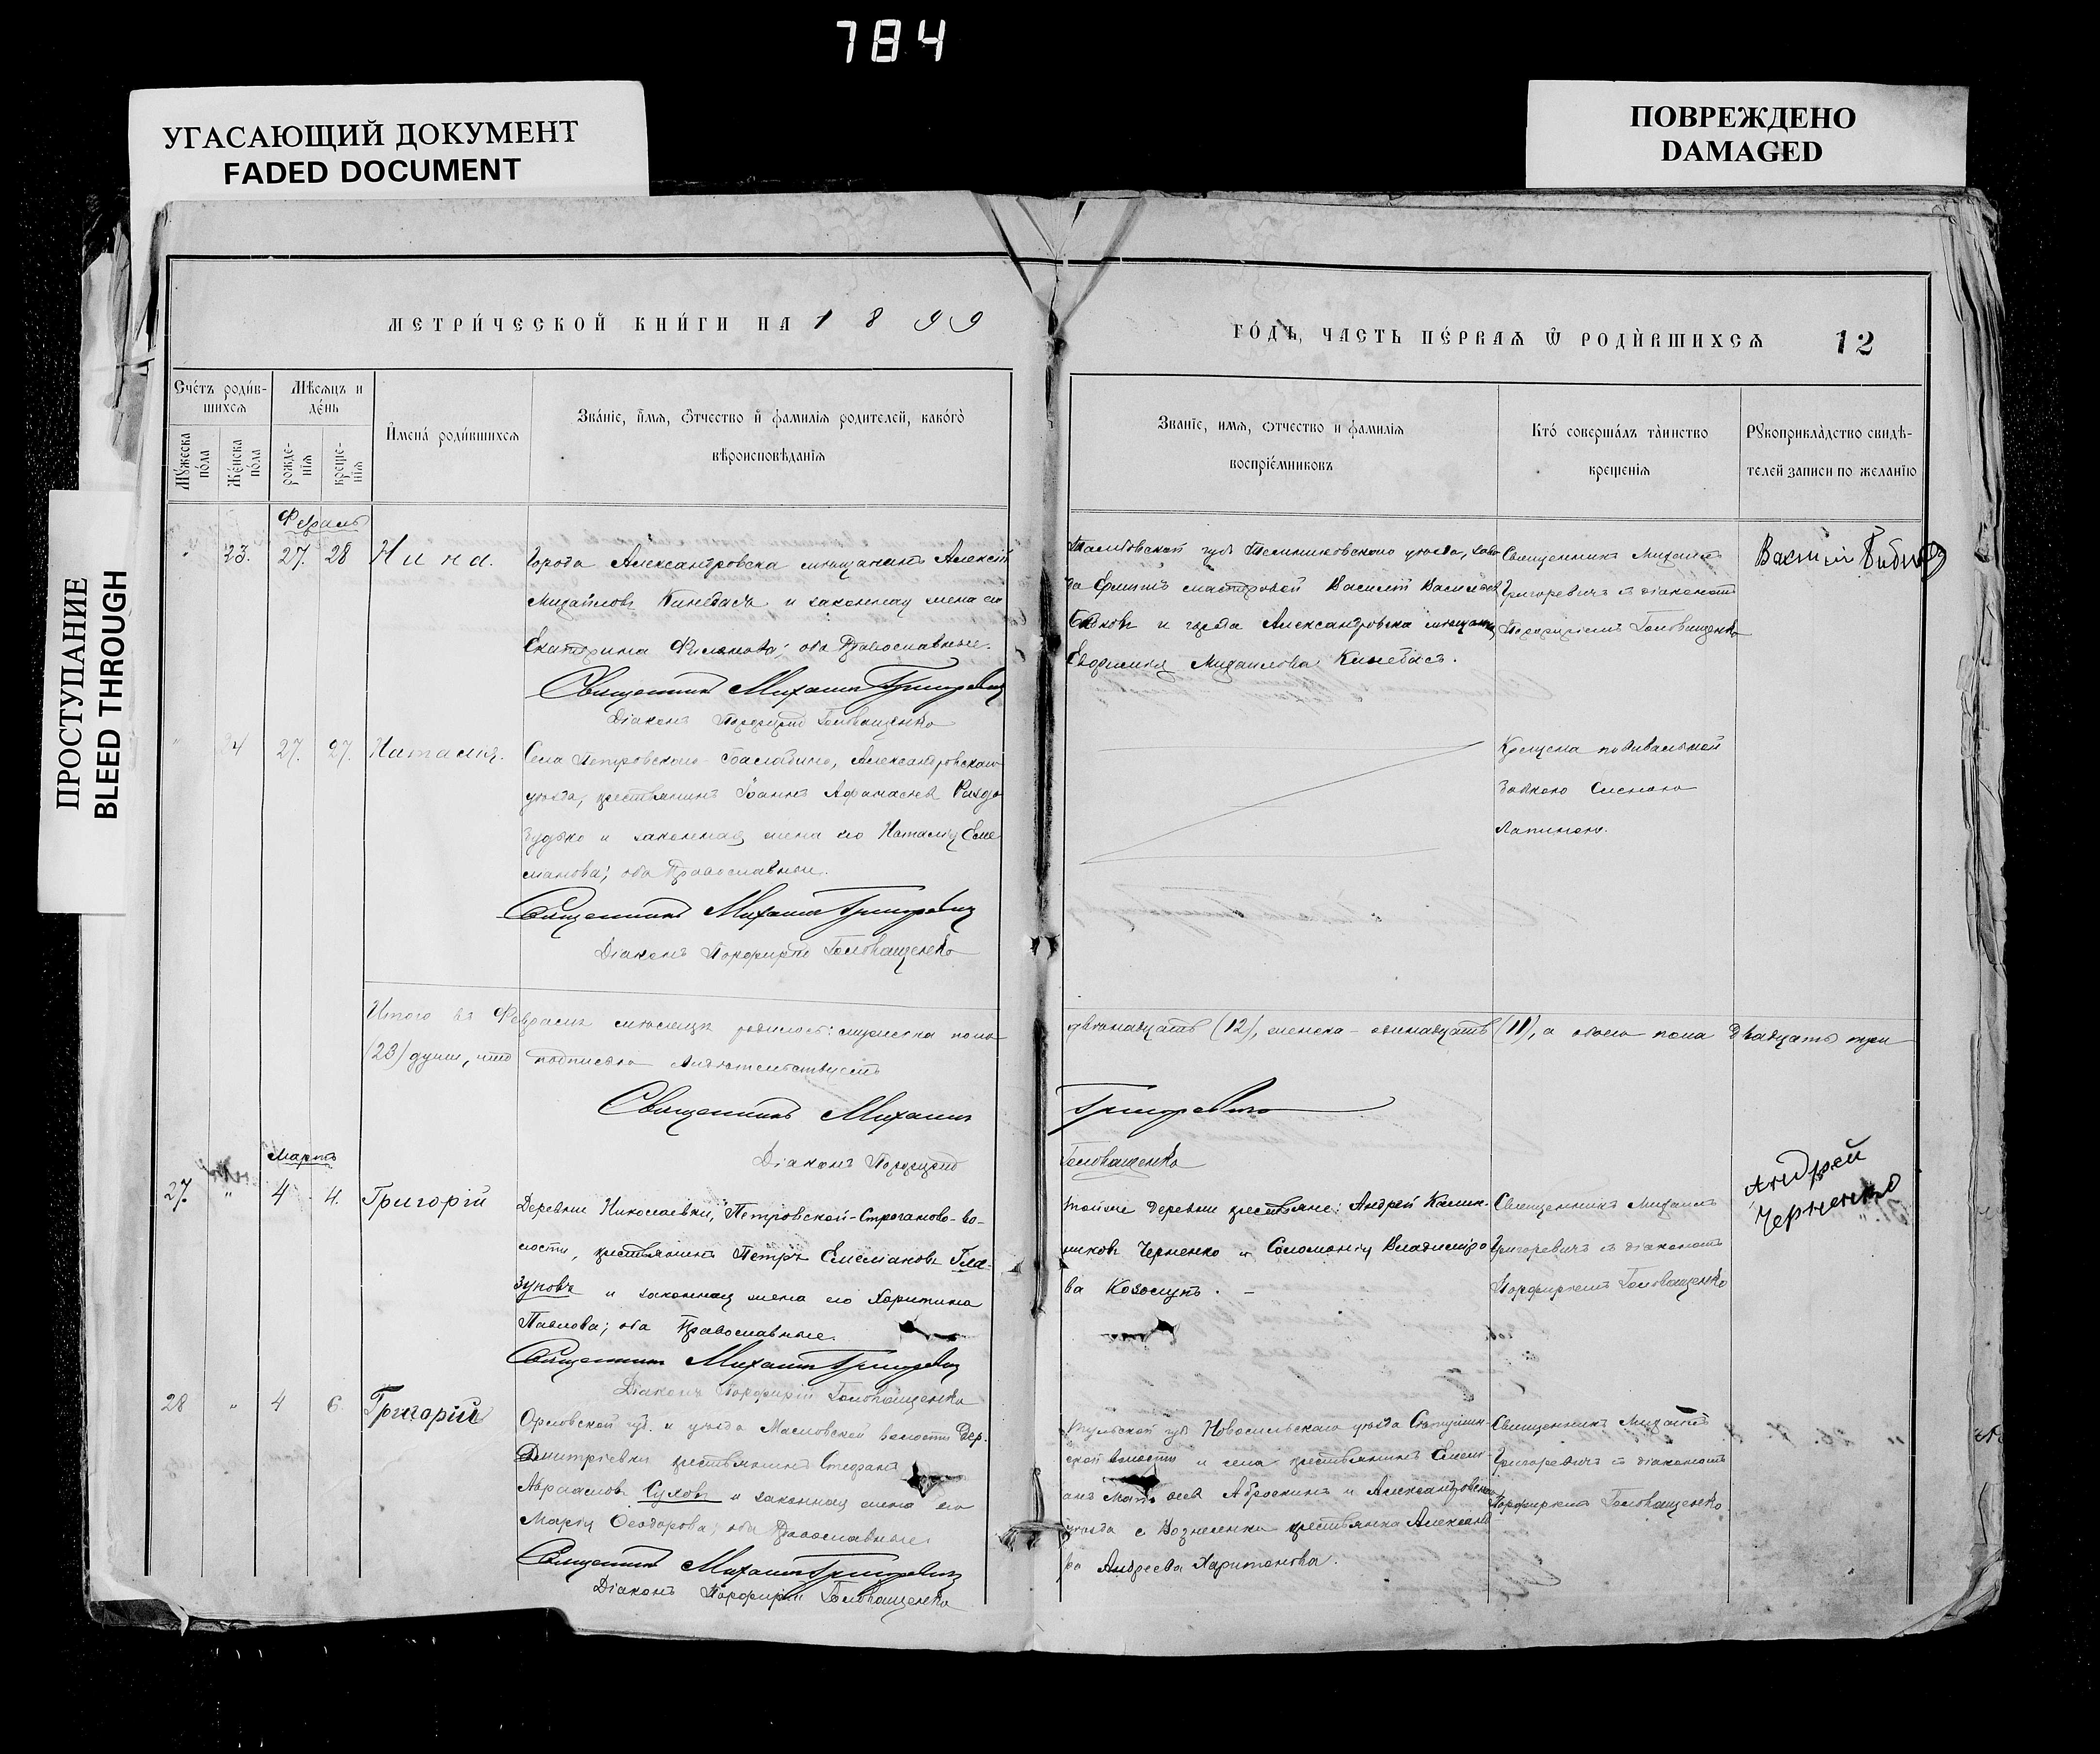 784
УГАСАЮЩИЙ ДОКУМЕНТ
FADED DOCUMENT
ПОВРЕЖДЕНО
DAMAGED
ПРОСТУПАНИЕ
BLEED THROUGH
МЕТРИ́ЧЕСКОЙ КНИ́ГИ НА 1899
ГО́ДЪ, ЧАСТЬ ПЕ́РВАѦ Ѿ РОДИ́ВШИХСѦ
12
Сче́тъ роди́в-
шихсѧ
Мѣ́сѧцъ и
де́нь
Мꙋ́жеска
по́ла
Же́нска
по́ла
рожде-
нїѧ
креще-
нїѧ
И҆мена́ роди́вшихсѧ
Зва́нїе, и҆́мѧ, ѻ҆́тчество и҆ фами́лїѧ роди́телей, како́гѡ
вѣроисповѣ́данїѧ
Зва́нїе, имѧ, ѻтчество и фамилїѧ
воспрїе́мниковъ
Кто́ соверша́лъ та́инство
креще́нїѧ
Рꙋкоприкла́дство свидѣ́-
телей записи по желанїю
Февраль
23. 27. 28 Нина.
Города Александровска мѣщанинъ Алексѣй
Михайловъ Кинебасъ и законная жена его
Екатерина Филипова; оба Православные.
Священникъ Михаилъ Григоревичъ
Діаконъ Порфирій Головащенко
Тамбовской губ. Темниковскаго уѣзда, заво
да мастеровой Василій Васильев
и города Александровска мѣщанка
Евфимія Михаилова Кинебасъ.
Священникъ Михаилъ
Григоревичъ съ діакономъ
Порфиріемъ Головащенко
Василій
24 27. 27. Наталія.
Села Петровскаго-Баловино, Александровскаго
уѣзда, крестьянинъ Іоаннъ Афанасіевъ
и законная жена его Наталія Еме
лианова; оба Православные.
Священникъ Михаилъ Григоревичъ
Діаконъ Порфирій Головащенко
Крещена повивальной
бабкою
Лапиною.
Итого въ Февралѣ мѣсяцѣ родилось: мужеска пола
двѣнадцать (12), женска - одинадцать (11), а обоего пола двадцать три
(23) души, что подписью свидѣтельствуемъ
Священникъ Михаилъ
Григоревичъ
Діаконъ Порфирій
Головащенко
Мартъ
27. " 4 4. Григорій
Деревни Николаевки, Петровской-Строганово-во-
лости, крестьянинъ Петръ Емеліановъ Гла-
зуновъ и законная жена его Харитина
Павлова; оба Православные.
Священникъ Михаилъ Григоревичъ
Діаконъ Порфирій Головащенко
Тойже деревни крестьяне: Андрей Калин-
никовъ Черненко и Соломонія Владиміро
ва Козолупъ.
Священникъ Михаилъ
Григоревичъ съ діакономъ
Порфиріемъ Головащенко
Андрей
Черненко
28 " 4 6 Григорій
Орловской губ. и уѣзда Масловской волости дер.
Дмитріевки крестьянинъ Стефанъ
Авраамовъ Суховъ и законная жена его
Марія Ѳеодорова; оба Православные.
Священникъ Михаилъ Григоревичъ
Діаконъ Порфирій Головащенко
Тульской губ. Новосильскаго уѣзда
ской волости и села крестьянинъ Емели-
анъ Матвѣевъ Аброскинъ и Александровскаго
уѣзда с. Вознесенки крестьянка Александ-
ра Андреева Харитонова.
Священникъ Михаилъ
Григоревичъ съ діакономъ
Порфиріемъ Головащенко.